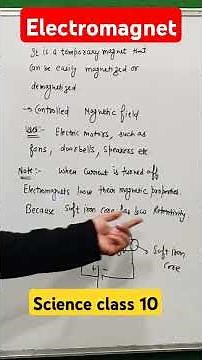 Electromagnet
It is a temporary magnet that
can be easily magnetized or
demagnetized
→ Controlled Magnetic field
Uses:- Electric motors, such as
fans, doorbells, speakers etc
Note:- When current is turned off
Electromagnets loose their magnetic properties
Because Soft iron core has low Retentivity
Soft iron
core
Science class 10